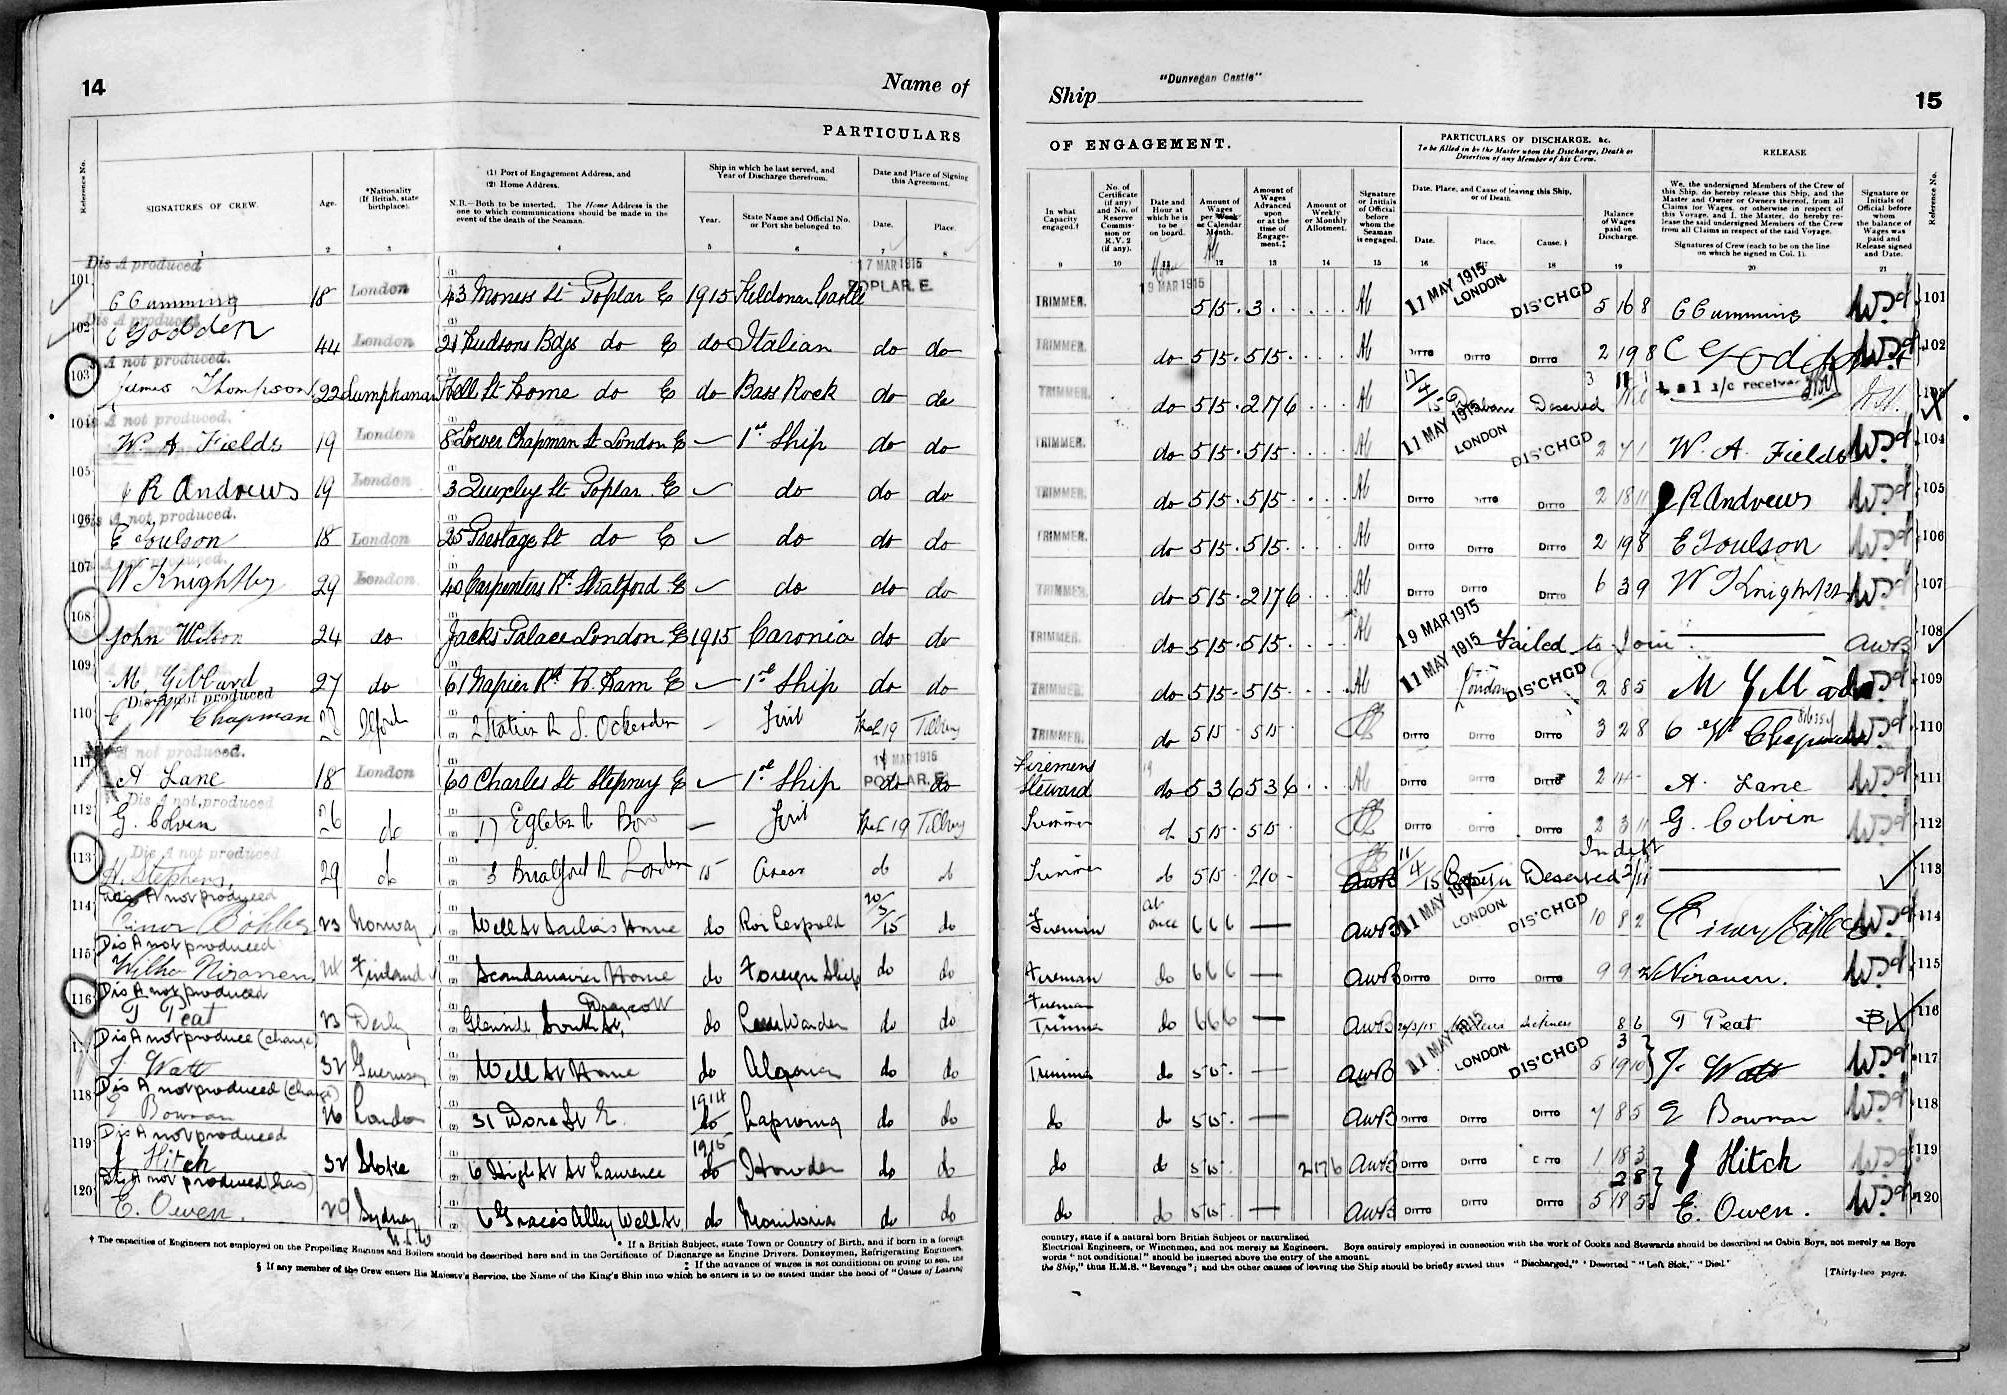 14
Name of
PARTICULARS
Reference No.
SIGNATURES OF CREW.
Age.
*Nationality (If British, state birthplace).
(1) Port of Engagement Address, and
(2) Home Address.
N.B.—Both to be inserted. The Home Address is the one to which communications should be made in the event of the death of the Seaman.
Ship in which he last served, and Year of Discharge therefrom.
Year.
State Name and Official No. or Port she belonged to.
Date and Place of Signing this Agreement.
Date.
Place.
1 2 3 4 5 6 7 8
Dis A produced
17 MAR 1915
POPLAR. E.
101 C Cumming 18 London 43 Moness St Poplar E 1915 Kildonan Castle
Dis A produced
102 C Godden 44 London 21 Hudsons Bdgs do E do Italian do do
A not produced.
103 James Thompson 22 Lumphanan Well St Home do E do Bass Rock do do
A not produced.
104 W. A Fields 19 London 8 Lower Chapman St London E 1st Ship do do
105 J R Andrews 19 London 3 Quixley St Poplar. E do do do
Dis A not produced.
106 E Foulson 18 London 25 Prestage St do E do do do
A not produced.
107 W Knightley 29 London 40 Carpenters Rd Stratford. E do do do
108 John Wilson 24 do Jacks Palace London E 1915 Caronia do do
109 M. Gibbard 27 do 61 Napier Rd W. Ham E 1st Ship do do
Dis A not produced
110 C W Chapman 2 Station Rd S. Ockendon First 19 Tilbury
A not produced.
111 A Lane 18 London 60 Charles St Stepney E 1st Ship do do
MAR 1915
POPLAR. E.
Dis A not produced
112 G. Colvin 26 do 17 Egleton Rd Bow First 19 Tilbury
Dis A not produced
113 H. Stephens 29 do 3 London 15 do do
Dis A not produced
114 23 Norway Well St Sailors Home do Roi Leopold 20/3/15 do
Dis A not produced
115 Wilho Niranen Finland Scandanavian Home do Foreign Ship do do
Dis A not produced
116 T Peat 23 Derby Glenside South St, Draycott do do do
Dis A not produce (change)
117 J Watt 32 Guernsey Well St Home do Algoma do do
Dis A not produced (change)
118 E Bowran 26 London 31 Dora St E. 1914 do Lapwing do do
Dis A not produced
119 J Hitch 32 Stoke 6 High St St Laurence 1915 do Howden do do
Dis A not produced (has)
120 E. Owen. 29 Sydney NSW 6 Graces Alley Well St. do Monitoria do do
† The capacities of Engineers not employed on the Propelling Engines and Boilers should be described here and in the Certificate of Discharge as Engine Drivers, Donkeymen, Refrigerating Engineers,
* If a British Subject, state Town or Country of Birth, and if born in a foreign
‡ If the advance of wages is not conditional on going to sea, the
§ If any member of the Crew enters His Majesty's Service, the Name of the King's Ship into which he enters is to be stated under the head of "Cause of Leaving
Ship
"Dunvegan Castle"
15
OF ENGAGEMENT.
PARTICULARS OF DISCHARGE, &c.
To be filled in by the Master upon the Discharge, Death or Desertion of any Member of his Crew.
RELEASE
In what Capacity engaged.†
No. of Certificate (if any) and No. of Reserve Commission or R.V. 2 (if any).
Date and Hour at which he is to be on board.
Amount of Wages per Week or Calendar Month.
Amount of Wages Advanced upon or at the time of Engagement.‡
Amount of Weekly or Monthly Allotment.
Signature or Initials of Official before whom the Seaman is engaged.
Date, Place, and Cause of leaving this Ship, or of Death.
Date.
Place.
Cause.§
Balance of Wages paid on Discharge.
We, the undersigned Members of the Crew of this Ship, do hereby release this Ship, and the Master and Owner or Owners thereof, from all Claims for Wages, or otherwise in respect of this Voyage, and I, the Master, do hereby release the said undersigned Members of the Crew from all Claims in respect of the said Voyage.
Signatures of Crew (each to be on the line on which he signed in Col. 1).
Signature or Initials of Official before whom the balance of Wages was paid and Release signed and Date.
Reference No.
9 10 11 12 13 14 15 16 17 18 19 20 21
19 MAR 1915
TRIMMER. 515. 3. 11 MAY 1915 LONDON. DIS'CHGD 5 16 8 C Cumming 101
TRIMMER. do 515. 515. DITTO DITTO DITTO 2 19 8 C Godden 102
TRIMMER. do 515. 2176 17/4/15 Deserted a/c received 103
TRIMMER. do 515. 515. 11 MAY 1915 LONDON DIS'CHGD 2 7 1 W. A. Fields 104
TRIMMER. do 515. 515. DITTO DITTO DITTO 2 18 11 J R Andrews 105
TRIMMER. do 515. 515. DITTO DITTO DITTO 2 19 8 E Foulson 106
TRIMMER. do 515. 2176 DITTO DITTO DITTO 6 3 9 W Knightley 107
TRIMMER. do 515. 515. 19 MAR 1915 Failed to Join. AWB 108
TRIMMER. do 515. 515. 11 MAY 1915 London DIS'CHGD 2 8 5 M Gibbard 109
TRIMMER. do 515 515. DITTO DITTO DITTO 3 2 8 C W Chapman 110
Firemens Steward do 536 536 DITTO DITTO DITTO 2 14 - A. Lane 111
Trimmer do 515. 515. DITTO DITTO DITTO 2 3 11 G. Colvin 112
Trimmer do 515. 210 - AWB 11/4/15 Deserted In debt 113
Fireman at once 666 — AWB 11 MAY 1915 LONDON. DIS'CHGD 10 8 2 114
Fireman do 666 — AWB DITTO DITTO DITTO 9 9 2 W Niranen. 115
Fireman Trimmer do 666 — AWB sickness 8 6 T Peat 116
Trimmer do 515. — AWB 11 MAY 1915 LONDON. DIS'CHGD 5 19 10 J. Watt 117
do do 515. — AWB DITTO DITTO DITTO 7 8 5 E Bowran 118
do do 515. 2176 AWB DITTO DITTO DITTO 1 18 3 J Hitch 119
do do 515. — AWB DITTO DITTO DITTO 5 18 5 E. Owen. 120
country, state if a natural born British Subject or naturalised
Electrical Engineers, or Winchmen, and not merely as Engineers. Boys entirely employed in connection with the work of Cooks and Stewards should be described as Cabin Boys, not merely as Boys
words "not conditional" should be inserted above the entry of the amount.
the Ship," thus H.M.S. "Revenge"; and the other causes of leaving the Ship should be briefly stated thus "Discharged," "Deserted" "Left Sick," "Died."
[Thirty-two pages.